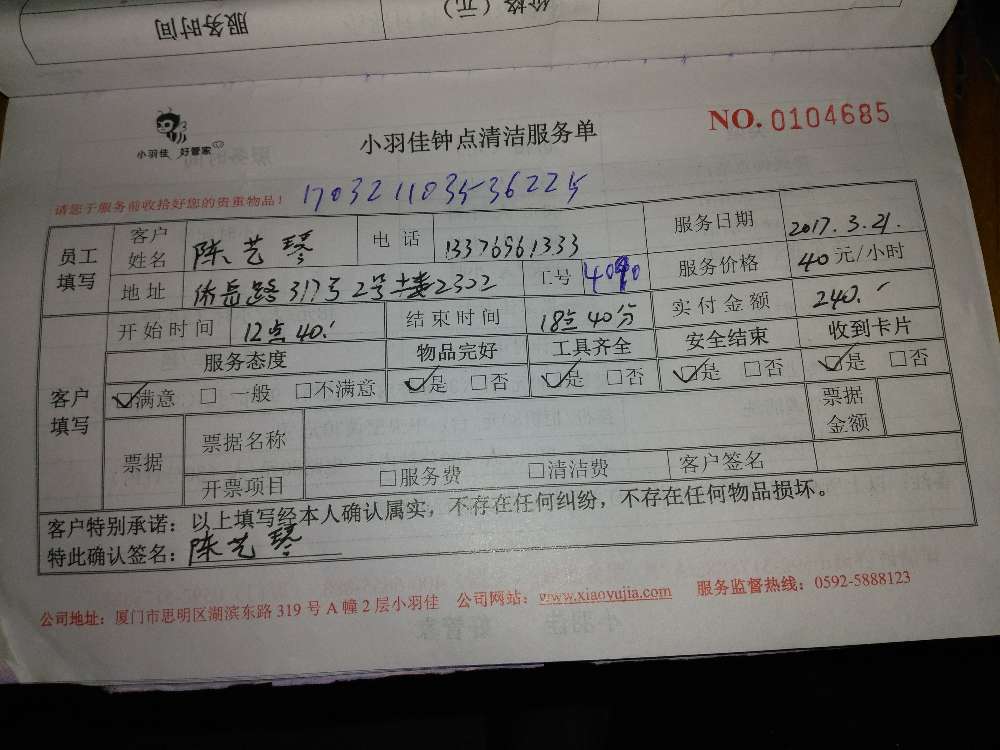 服务时间
价格（元）
小羽佳 好管家
小羽佳钟点清洁服务单
NO. 0104685
请您于服务前收拾好您的贵重物品！
170321103536225
员工填写 客户姓名 陈艺琴 电话 13376961333 服务日期 2017.3.21.
地址 体育路317号2号楼2302 工号 服务价格 40元/小时
客户填写 开始时间 12点40. 结束时间 18点40分 实付金额 240.
服务态度 物品完好 工具齐全 安全结束 收到卡片
☑满意 □一般 □不满意 ☑是 □否 ☑是 □否 ☑是 □否 ☑是 □否
票据 票据名称 票据金额
开票项目 □服务费 □清洁费 客户签名
客户特别承诺：以上填写经本人确认属实，不存在任何纠纷，不存在任何物品损坏。
特此确认签名：陈艺琴
公司地址：厦门市思明区湖滨东路 319 号 A 幢 2 层小羽佳 公司网站：www.xiaoyujia.com 服务监督热线：0592-5888123